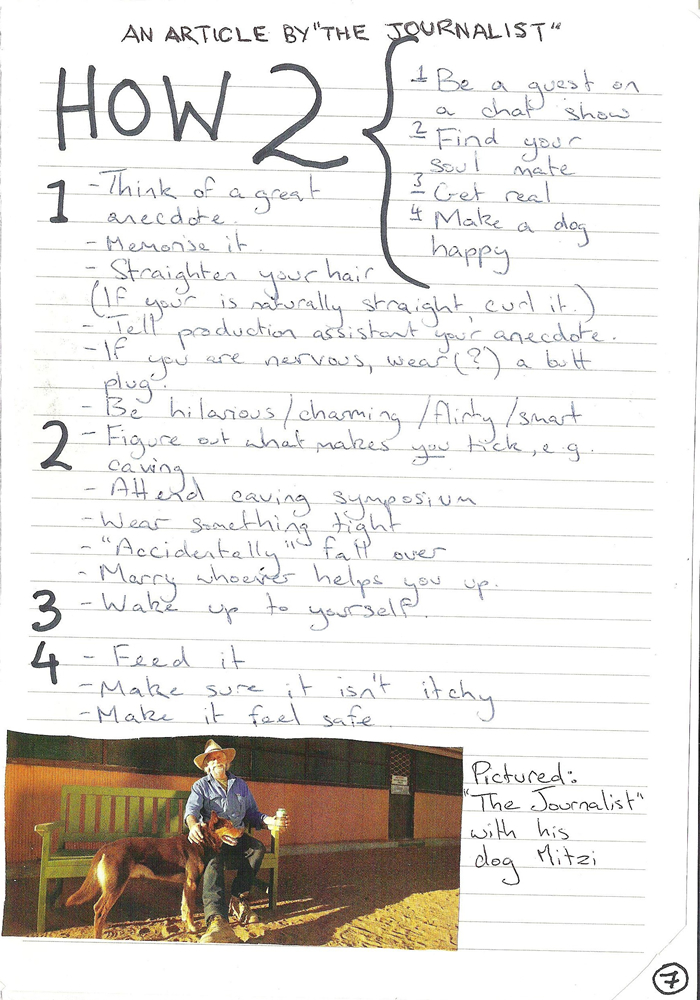 AN ARTICLE BY "THE JOURNALIST"
HOW 2
1 Be a guest on
a chat show
2 Find your
soul mate
3 Get real
4 Make a dog
happy
1 - Think of a great
anecdote.
- Memorise it.
- Straighten your hair
(If your is naturally straight, curl it.)
- Tell production assistant your anecdote.
- If you are nervous, wear(?) a butt
plug.
- Be hilarious/charming/flirty/smart
2 - Figure out what makes you tick, e.g.
caving
- Attend caving symposium
- Wear something tight
- "Accidentally" fall over
- Marry whoever helps you up.
3 - Wake up to yourself.
4 - Feed it
- Make sure it isn't itchy
- Make it feel safe.
Pictured:
"The Journalist"
with his
dog Mitzi
7